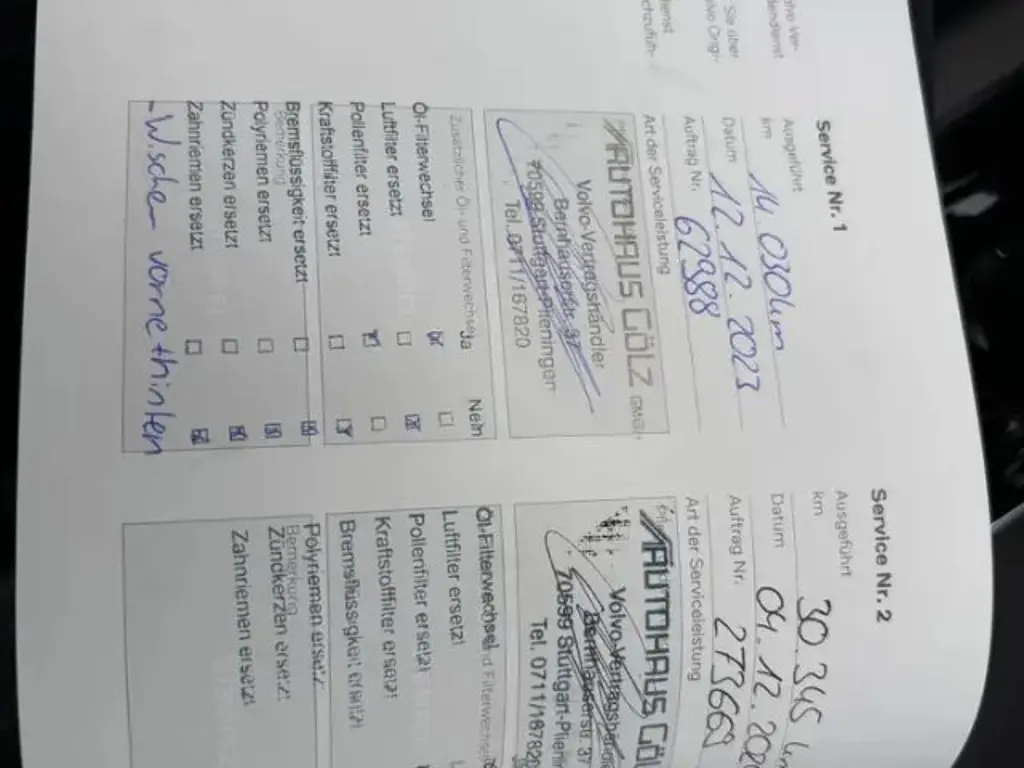 Sie über
Service Nr. 1
Ausgeführt
km 14.030km
Datum 12.12.2023
Auftrag Nr. 62988
Art der Serviceleistung
AUTOHAUS GÖLZ GMBH
Volvo-Vertragshändler
Bernhauserstr. 37
70599 Stuttgart-Plieningen
Tel. 0711/167820
Zusätzlicher Öl- und Filterwechsel Ja Nein
Öl-Filterwechsel
Luftfilter ersetzt
Pollenfilter ersetzt
Kraftstofffilter ersetzt
Bremsflüssigkeit ersetzt
Bemerkung
Polyriemen ersetzt
Zündkerzen ersetzt
Zahnriemen ersetzt
- Wischer vorne + hinten
Service Nr. 2
Ausgeführt
km 30.345
Datum 04.12.202
Auftrag Nr. 273669
Art der Serviceleistung
AUTOHAUS GÖL
Volvo-Vertragshändle
Bernhauserstr. 37
70599 Stuttgart-Plienin
Tel. 0711/167820
Öl-Filterwechsel
Luftfilter ersetzt
Pollenfilter ersetzt
Kraftstofffilter ersetzt
Bremsflüssigkeit ersetzt
Polyriemen ersetzt
Bemerkung
Zündkerzen ersetzt
Zahnriemen ersetzt